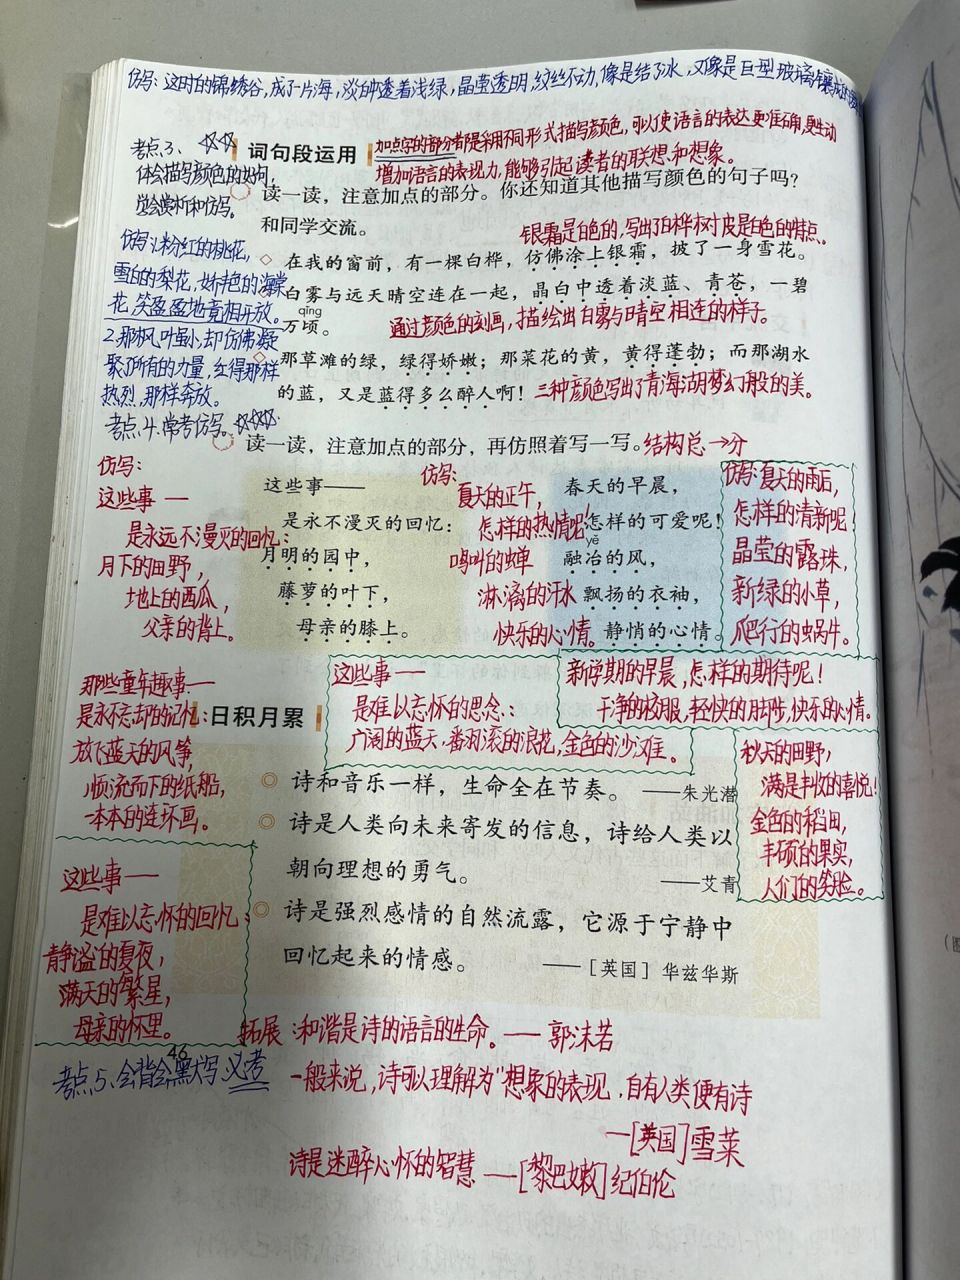 仿写：这时的锦绣谷，成了一片海，淡白中透着浅绿，晶莹透明，纹丝不动，像是结了冰，又像是巨型玻璃镶成的
考点3、☆☆
体会描写颜色的好句，
学会赏析和仿写。
词句段运用
加点字的部分都是采用不同形式描写颜色，可以使语言的表达更准确，更生动
增加语言的表现力，能够引起读者的联想和想象。
读一读，注意加点的部分。你还知道其他描写颜色的句子吗？
和同学交流。
银霜是白色的，写出了白桦树皮是白色的特点。
仿写：1.粉红的桃花，
雪白的梨花，娇艳的海棠
花，笑盈盈地竞相开放。
2.那枫叶虽小，却仿佛凝
聚了所有的力量，红得那样
热烈，那样奔放。
在我的窗前，有一棵白桦，仿佛涂上银霜，披了一身雪花。
白雾与远天晴空连在一起，晶白中透着淡蓝、青苍，一碧
qǐng
万顷。
通过颜色的刻画，描绘出白雾与晴空相连的样子。
那草滩的绿，绿得娇嫩；那菜花的黄，黄得蓬勃；而那湖水
的蓝，又是蓝得多么醉人啊！
三种颜色写出了青海湖梦幻般的美。
考点4.常考仿写。☆☆☆
读一读，注意加点的部分，再仿照着写一写。
结构总→分
仿写：
这些事—
是永远不漫灭的回忆：
月下的田野，
地上的西瓜，
父亲的背上。
这些事——
是永不漫灭的回忆：
月明的园中，
藤萝的叶下，
母亲的膝上。
仿写：
夏天的正午，
怎样的热情呢！
鸣叫的蝉
淋漓的汗水
快乐的心情。
春天的早晨，
怎样的可爱呢！
yě
融冶的风，
飘扬的衣袖，
静悄的心情。
仿写：夏天的雨后，
怎样的清新呢
晶莹的露珠，
新绿的小草，
爬行的蜗牛。
那些童年趣事—
是永不忘却的记忆：
放飞蓝天的风筝，
顺流而下的纸船，
一本本的连环画。
这些事—
是难以忘怀的思念：
广阔的蓝天，番羽滚的浪花，金色的沙滩。
新学期的早晨，怎样的期待呢！
干净的校服，轻快的脚步，快乐的心情。
日积月累
诗和音乐一样，生命全在节奏。 ——朱光潜
诗是人类向未来寄发的信息，诗给人类以
朝向理想的勇气。 ——艾青
诗是强烈感情的自然流露，它源于宁静中
回忆起来的情感。 ——［英国］华兹华斯
秋天的田野，
满是丰收的喜悦！
金色的稻田，
丰硕的果实，
人们的笑脸。
这些事—
是难以忘怀的回忆：
静谧的夏夜，
满天的繁星，
母亲的怀里。
46
考点5、会背会默写。必考
拓展：和谐是诗的语言的生命。——郭沫若
一般来说，诗可以理解为“想象的表现，自有人类便有诗
—[英国]雪莱
诗是迷醉心怀的智慧 —[黎巴嫩] 纪伯伦